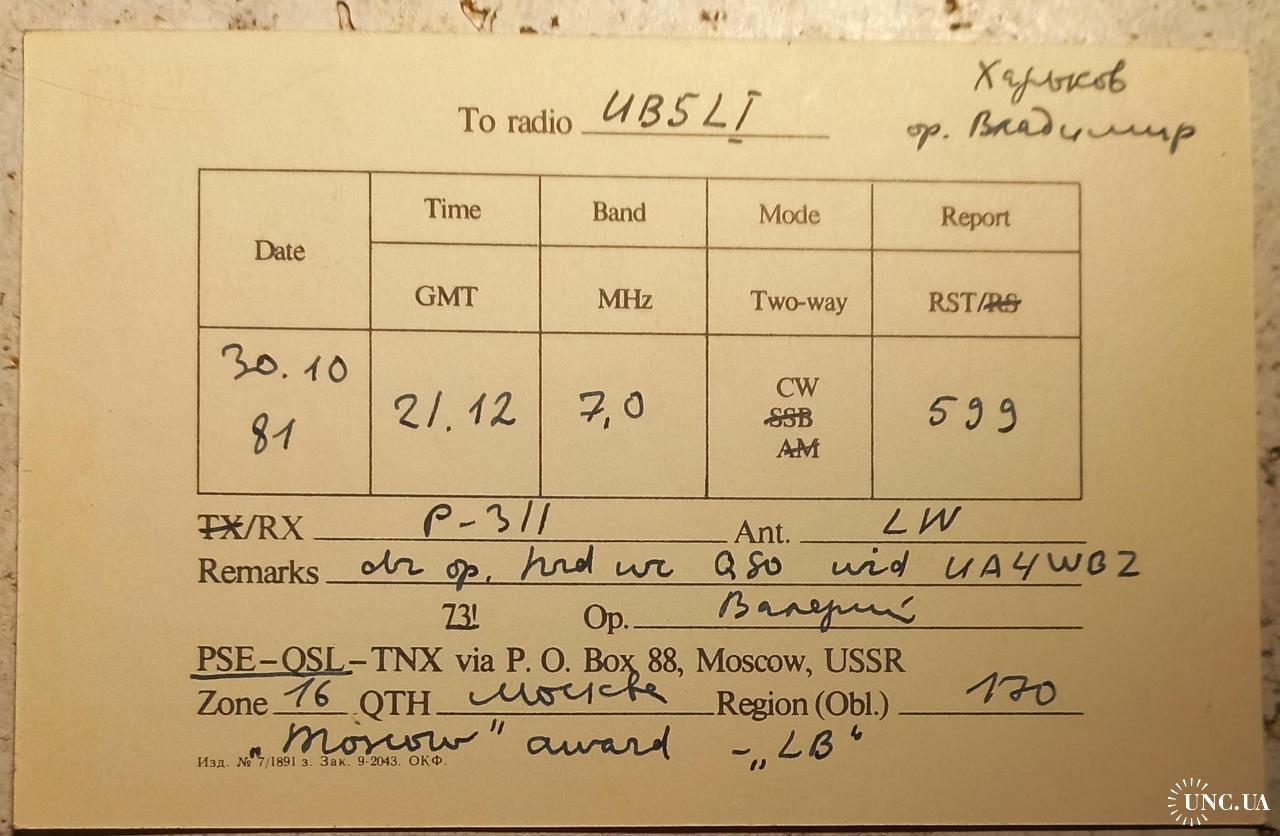 Харьков
To radio UB5LI
op. Владимир
Date Time Band Mode Report
GMT MHz Two-way RST/RS
30.10
81
21.12 7,0 599
CW
SSB
AM
TX/RX P-311 Ant. LW
Remarks dr op. hrd ur QSO wid UA4WBZ
73! Op. Валерий
PSE-QSL-TNX via P. O. Box 88, Moscow, USSR
Zone 16 QTH Москва Region (Obl.) 170
„Moscow" award - „LB"
Изд. № 7/1891 з. Зак. 9-2043. ОКФ.
UNC.UA